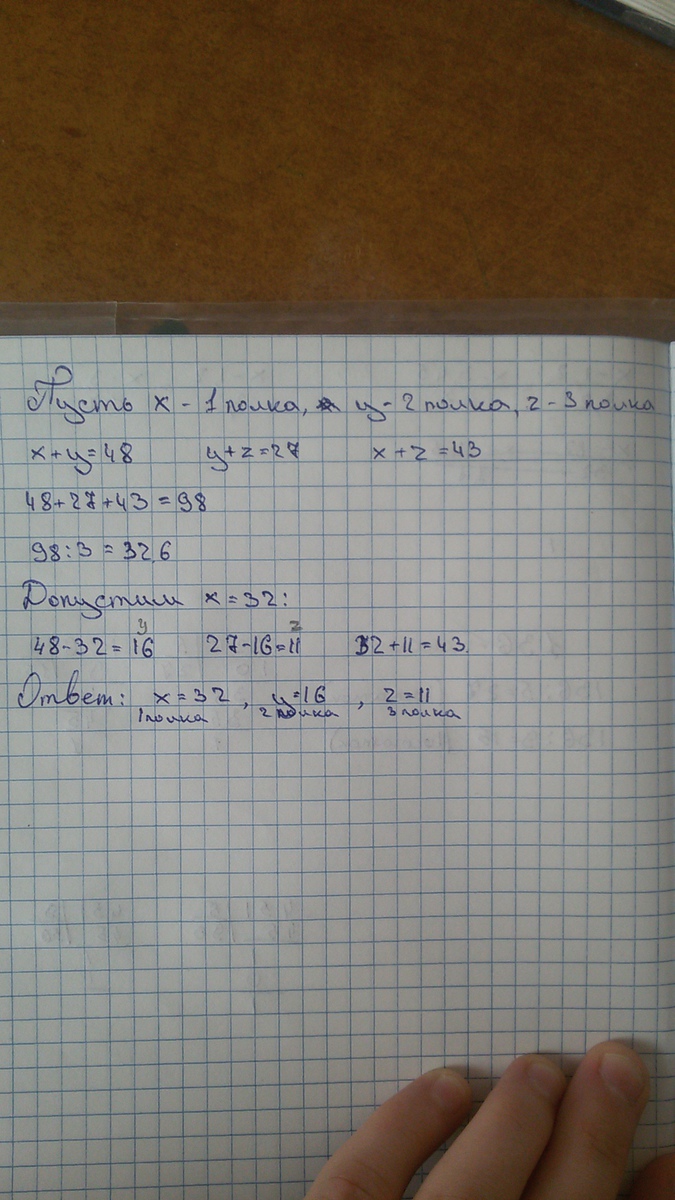 Пусть x - 1 полка, y - 2 полка, z - 3 полка
x+y=48 y+z=27 x+z=43
48+27+43=98
98:3=32,6
Допустим x=32:
y z
48-32=16 27-16=11 32+11=43.
Ответ: x=32, y=16, z=11
1 полка 2 полка 3 полка